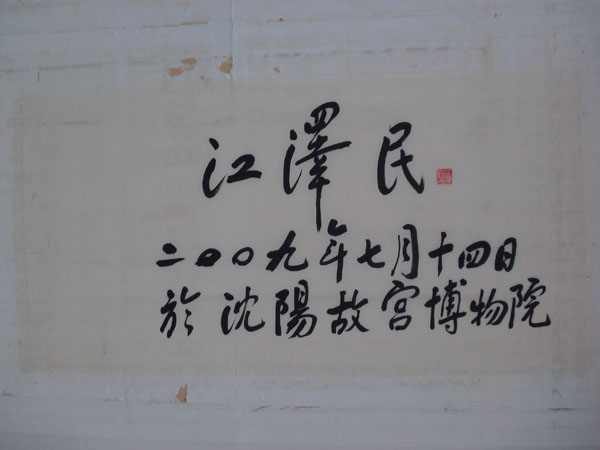 江澤民
二〇〇九年七月十四日
於沈陽故宮博物院